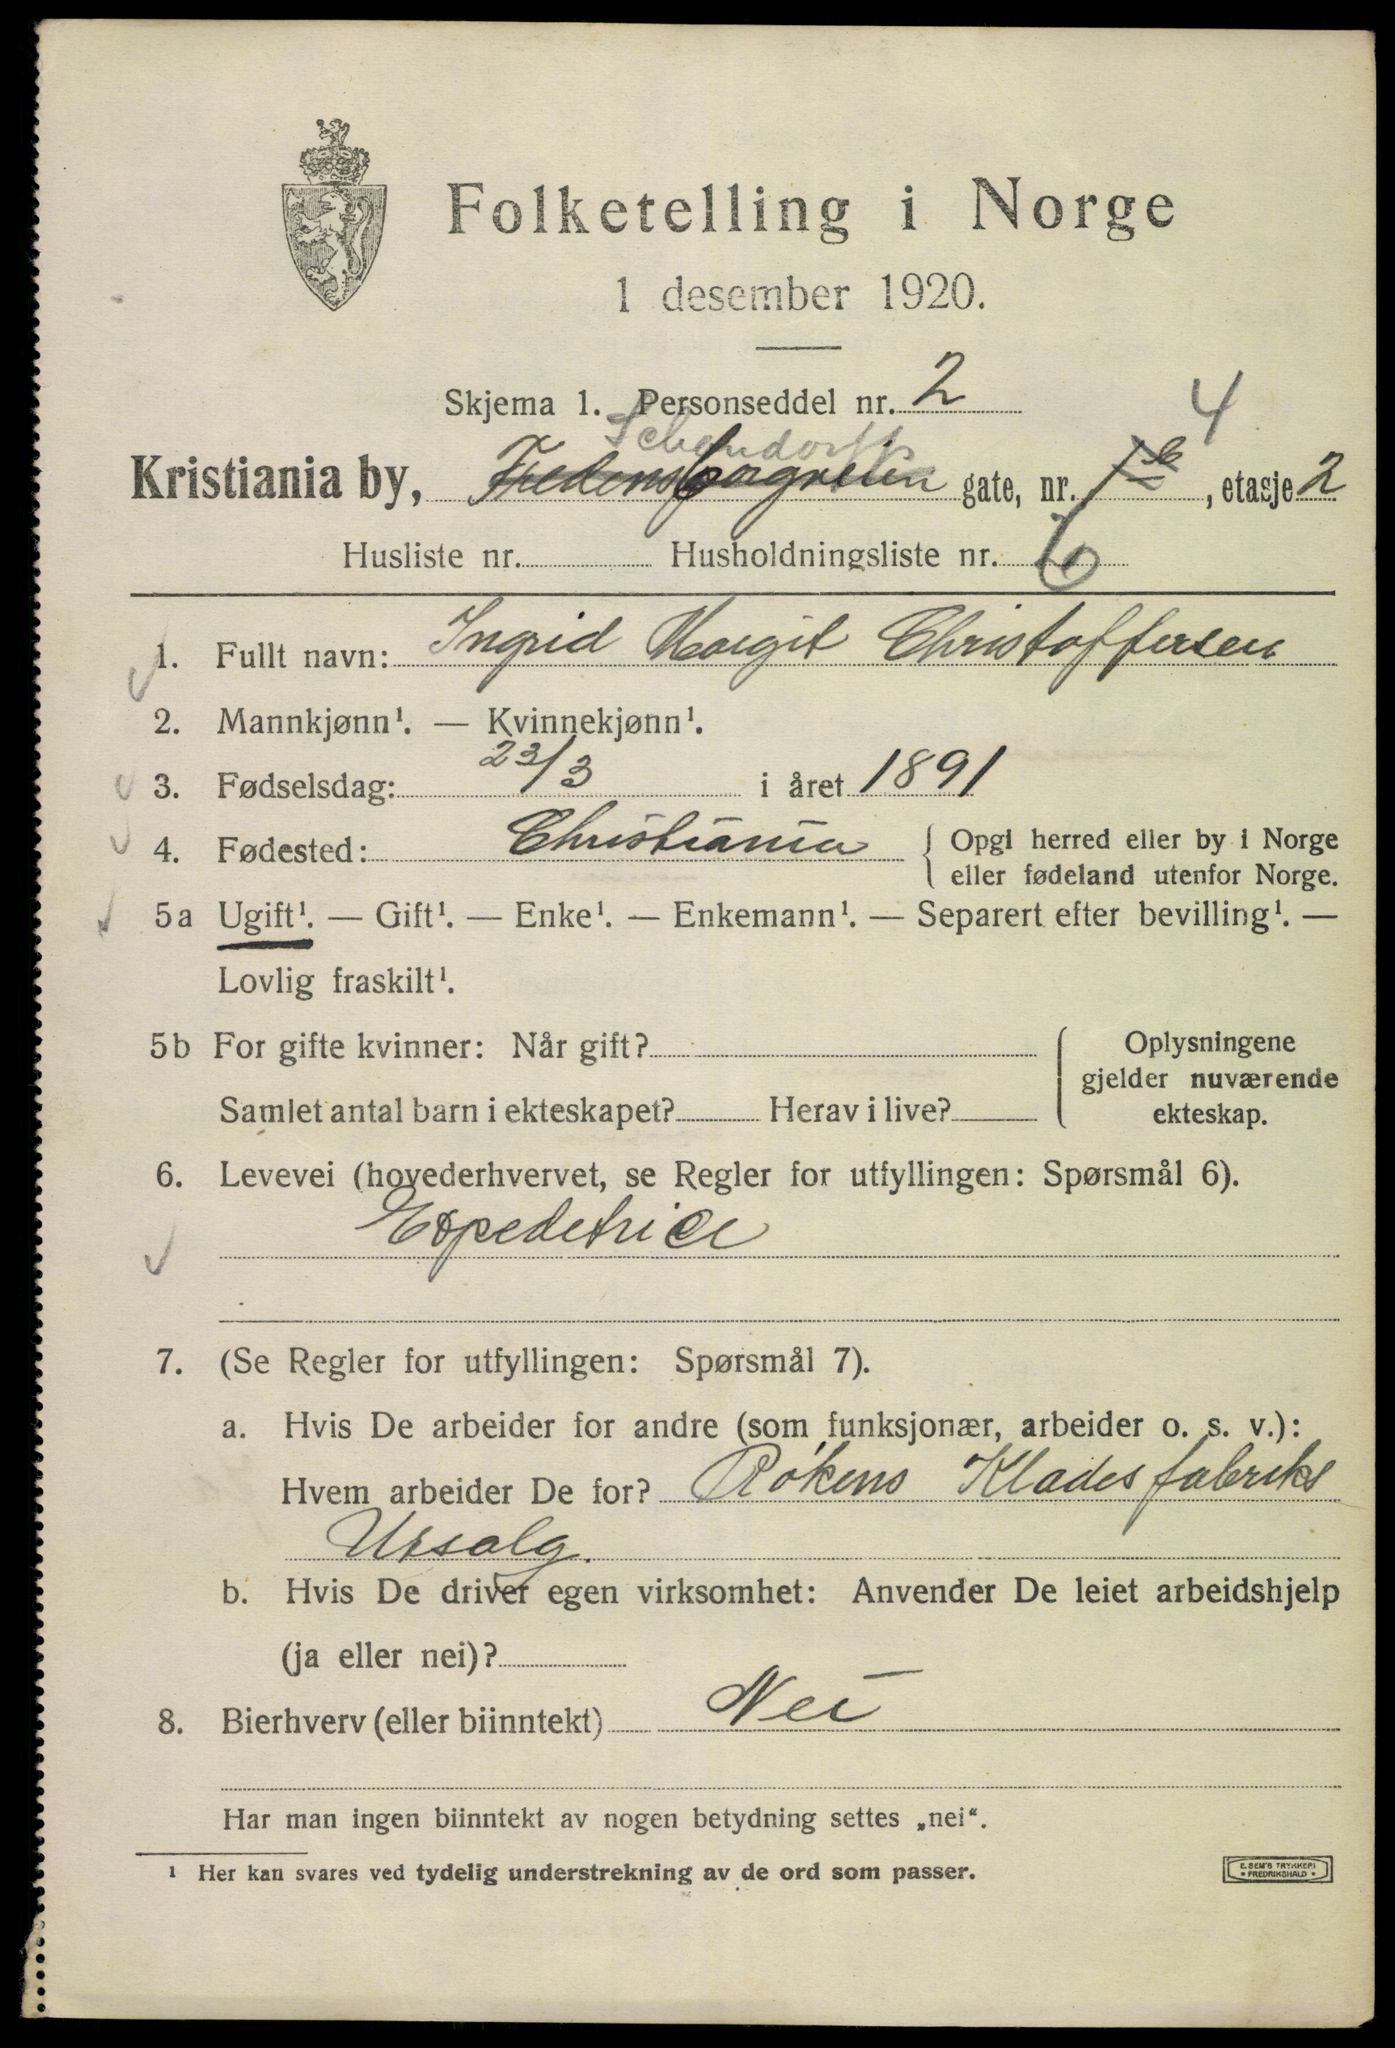 Folketelling i Norge
1 desember 1920.
Skjema 1. Personseddel nr. 2
4
Kristiania by, gate, nr. , etasje 2
Husliste nr. Husholdningsliste nr. 6
1. Fullt navn: Ingrid Margit Christoffersen
2. Mannkjønn¹. — Kvinnekjønn¹.
3. Fødselsdag: 23/3 i året 1891
4. Fødested: Christiania { Opgi herred eller by i Norge
eller fødeland utenfor Norge.
5a Ugift¹. — Gift¹. — Enke¹. — Enkemann¹. — Separert efter bevilling¹. —
Lovlig fraskilt¹.
5b For gifte kvinner: Når gift? Oplysningene
gjelder nuværende
Samlet antal barn i ekteskapet? Herav i live? ekteskap.
6. Levevei (hovederhvervet, se Regler for utfyllingen: Spørsmål 6).
Expedetrice
7. (Se Regler for utfyllingen: Spørsmål 7).
a. Hvis De arbeider for andre (som funksjonær, arbeider o. s. v.):
Hvem arbeider De for? Røkens Kladesfabriks
Utsalg.
b. Hvis De driver egen virksomhet: Anvender De leiet arbeidshjelp
(ja eller nei)?
8. Bierhverv (eller biinntekt) Nei
Har man ingen biinntekt av nogen betydning settes „nei“.
¹ Her kan svares ved tydelig understrekning av de ord som passer.
E. SEM'S TRYKKERI
• FREDRIKSHALD •